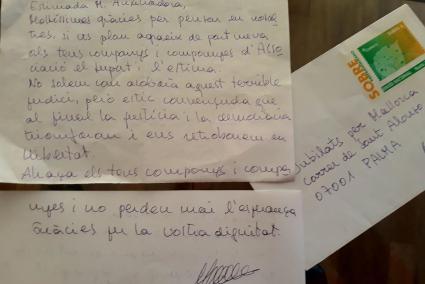 Estimada M. Auxiliadora,
Moltíssimes gràcies per pensar en nosal-
tres, si us plau agraeix de part meva
als teus companys i companyes d'Asso-
ciació el suport i l'estima.
No sabem com acabarà aquest terrible
judici, però estic convençuda que
al final la justícia i la democràcia
triomfaran i ens retrobarem en
llibertat.
Abraça els teus companys i compa
nyes i no perdeu mai l'esperança
Gràcies per la vostra dignitat.
SOBRE
Jubilats per Mallorca
Carrer de Sant Alonso
07001 PALMA